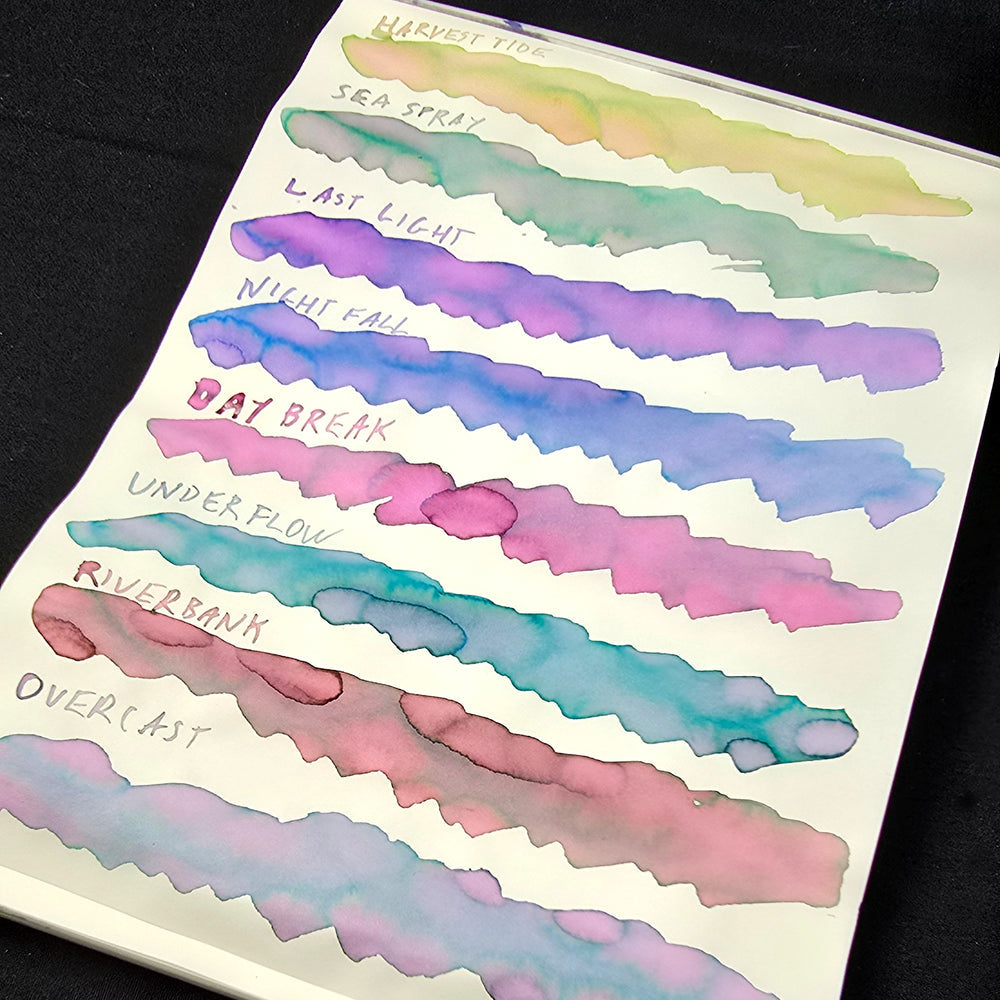 HARVEST TIDE
SEA SPRAY
LAST LIGHT
NIGHT FALL
DAY BREAK
UNDERFLOW
RIVERBANK
OVERCAST